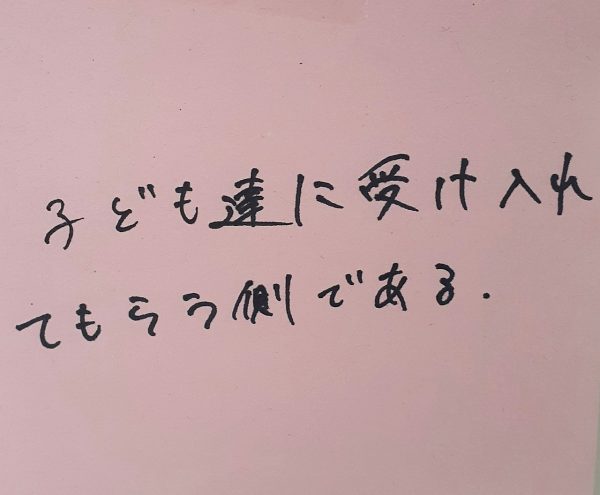 子ども達に受け入れ
てもらう側である.